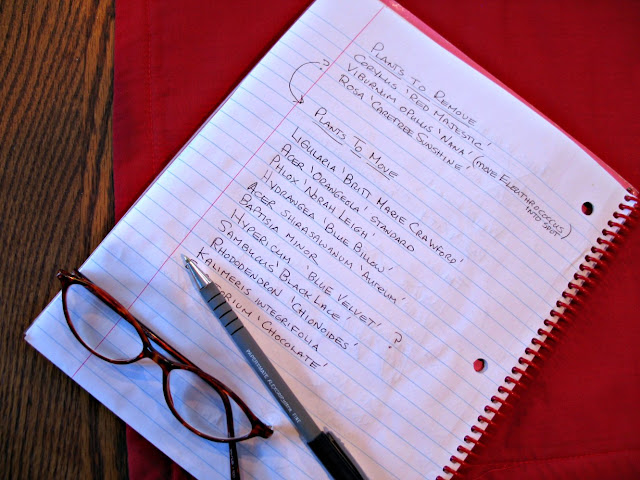 Plants To Remove
Corylus 'Red Majestic'
Viburnum opulus 'Nana' (move Eleuthrococcus into spot)
Rosa 'Carefree Sunshine'
?
Plants To Move
Ligularia 'Britt Marie Crawford'
Acer 'Orangeola' standard
Phlox 'Norah Leigh'
Hydrangea 'Blue Billow'
Acer shirasawanum 'Aureum'
Baptisia minor
Hypericum 'Blue Velvet'
Sambucus 'Black Lace' ?
Rhododendron 'Chionoides'
Kalimeris integrifolia
orium 'Chocolate'